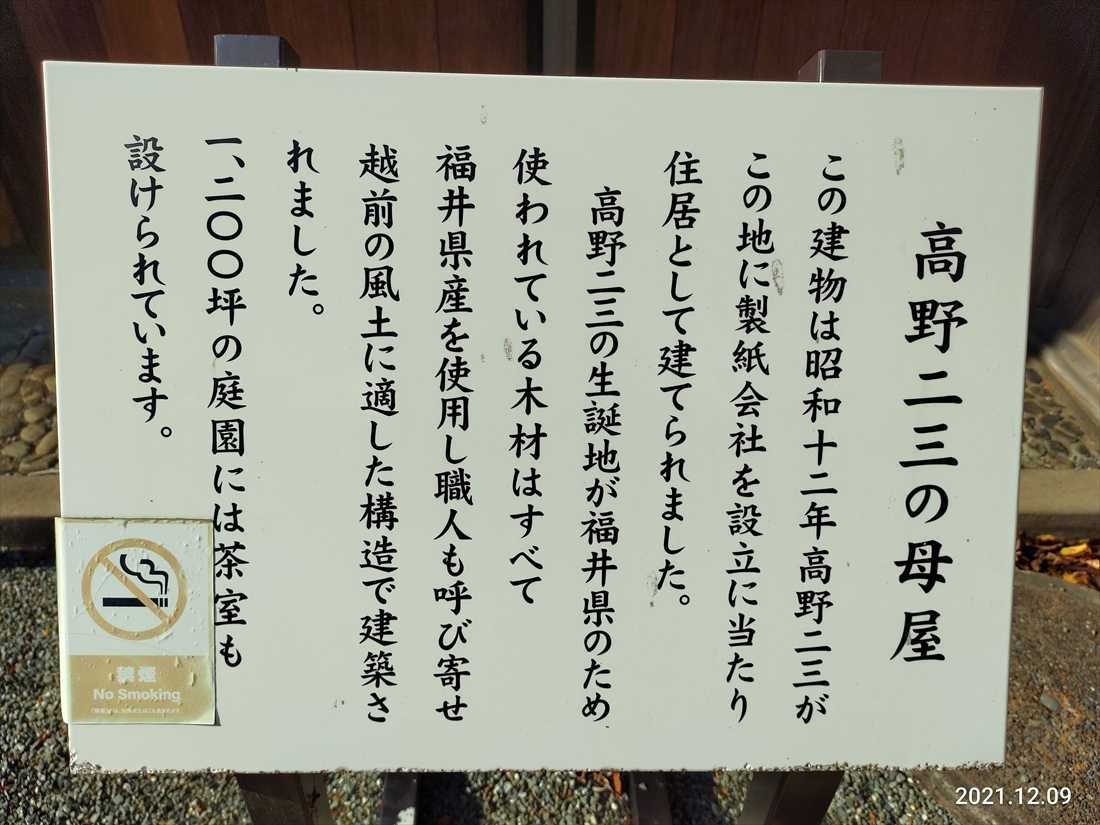 高野二三の母屋
この建物は昭和十二年高野二三が
この地に製紙会社を設立に当たり
住居として建てられました。
高野二三の生誕地が福井県のため
使われている木材はすべて
福井県産を使用し職人も呼び寄せ
越前の風土に適した構造で建築さ
れました。
一、二〇〇坪の庭園には茶室も
設けられています。
禁煙
No Smoking
2021.12.09